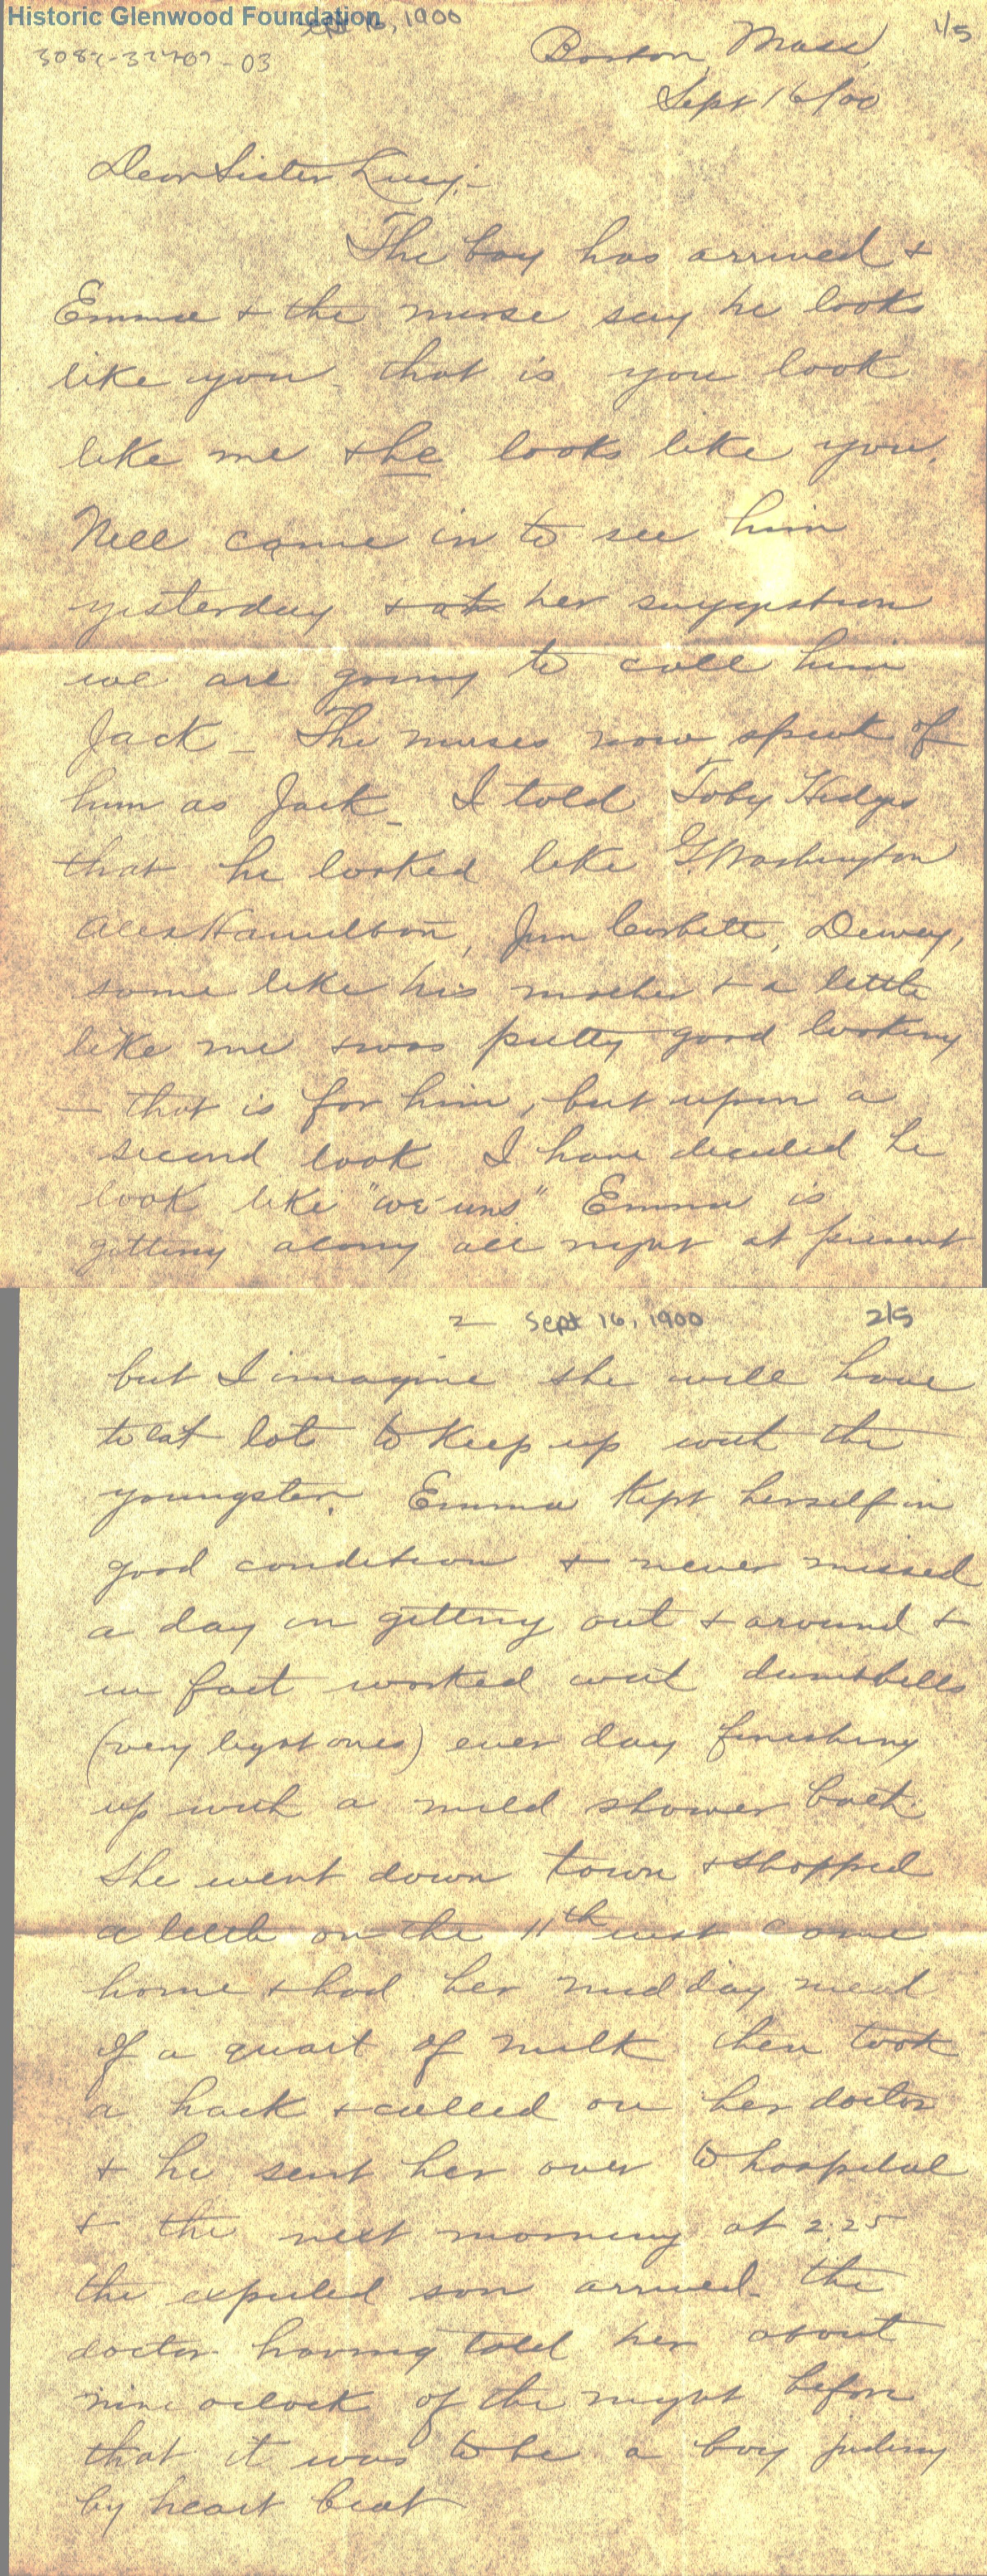 Historic Glenwood Foundation
Sept 16, 1900
1/5
Boston, Mass,
Sept 16/00
Dear Sister Lucy:-
The boy has arrived +
Emma + the nurse say he looks
like you - that is you look
like me + he looks like you.
Nell came in to see him
yesterday + at her suggestion
we are going to call him
Jack - The nurses now speak of
him as Jack - I told Toby Hedges
that he looked like G. Washington
Alex Hamilton, Jim Corbett, Dewey,
some like his mother + a little
like me + was pretty good looking
- that is for him, but upon a
second look I have decided he
look like "we uns" Emma is
getting along all right at present
2 Sept 16, 1900 2/5
but I imagine she will have
to eat lots to keep up with the
youngster. Emma kept herself in
good condition + never missed
a day in getting out + around +
in fact worked with dumbbells
(very light ones) ever day finishing
up with a mild shower bath.
She went down town + shopped
a little on the 11th inst came
home + had her mid day meal
of a quart of milk then took
a hack + called on her doctor
+ he sent her over to hospital
+ the next morning at 2:25
the expected son arrived - the
doctor having told her about
nine oclock of the night before
that it was to be a boy judging
by heart beat